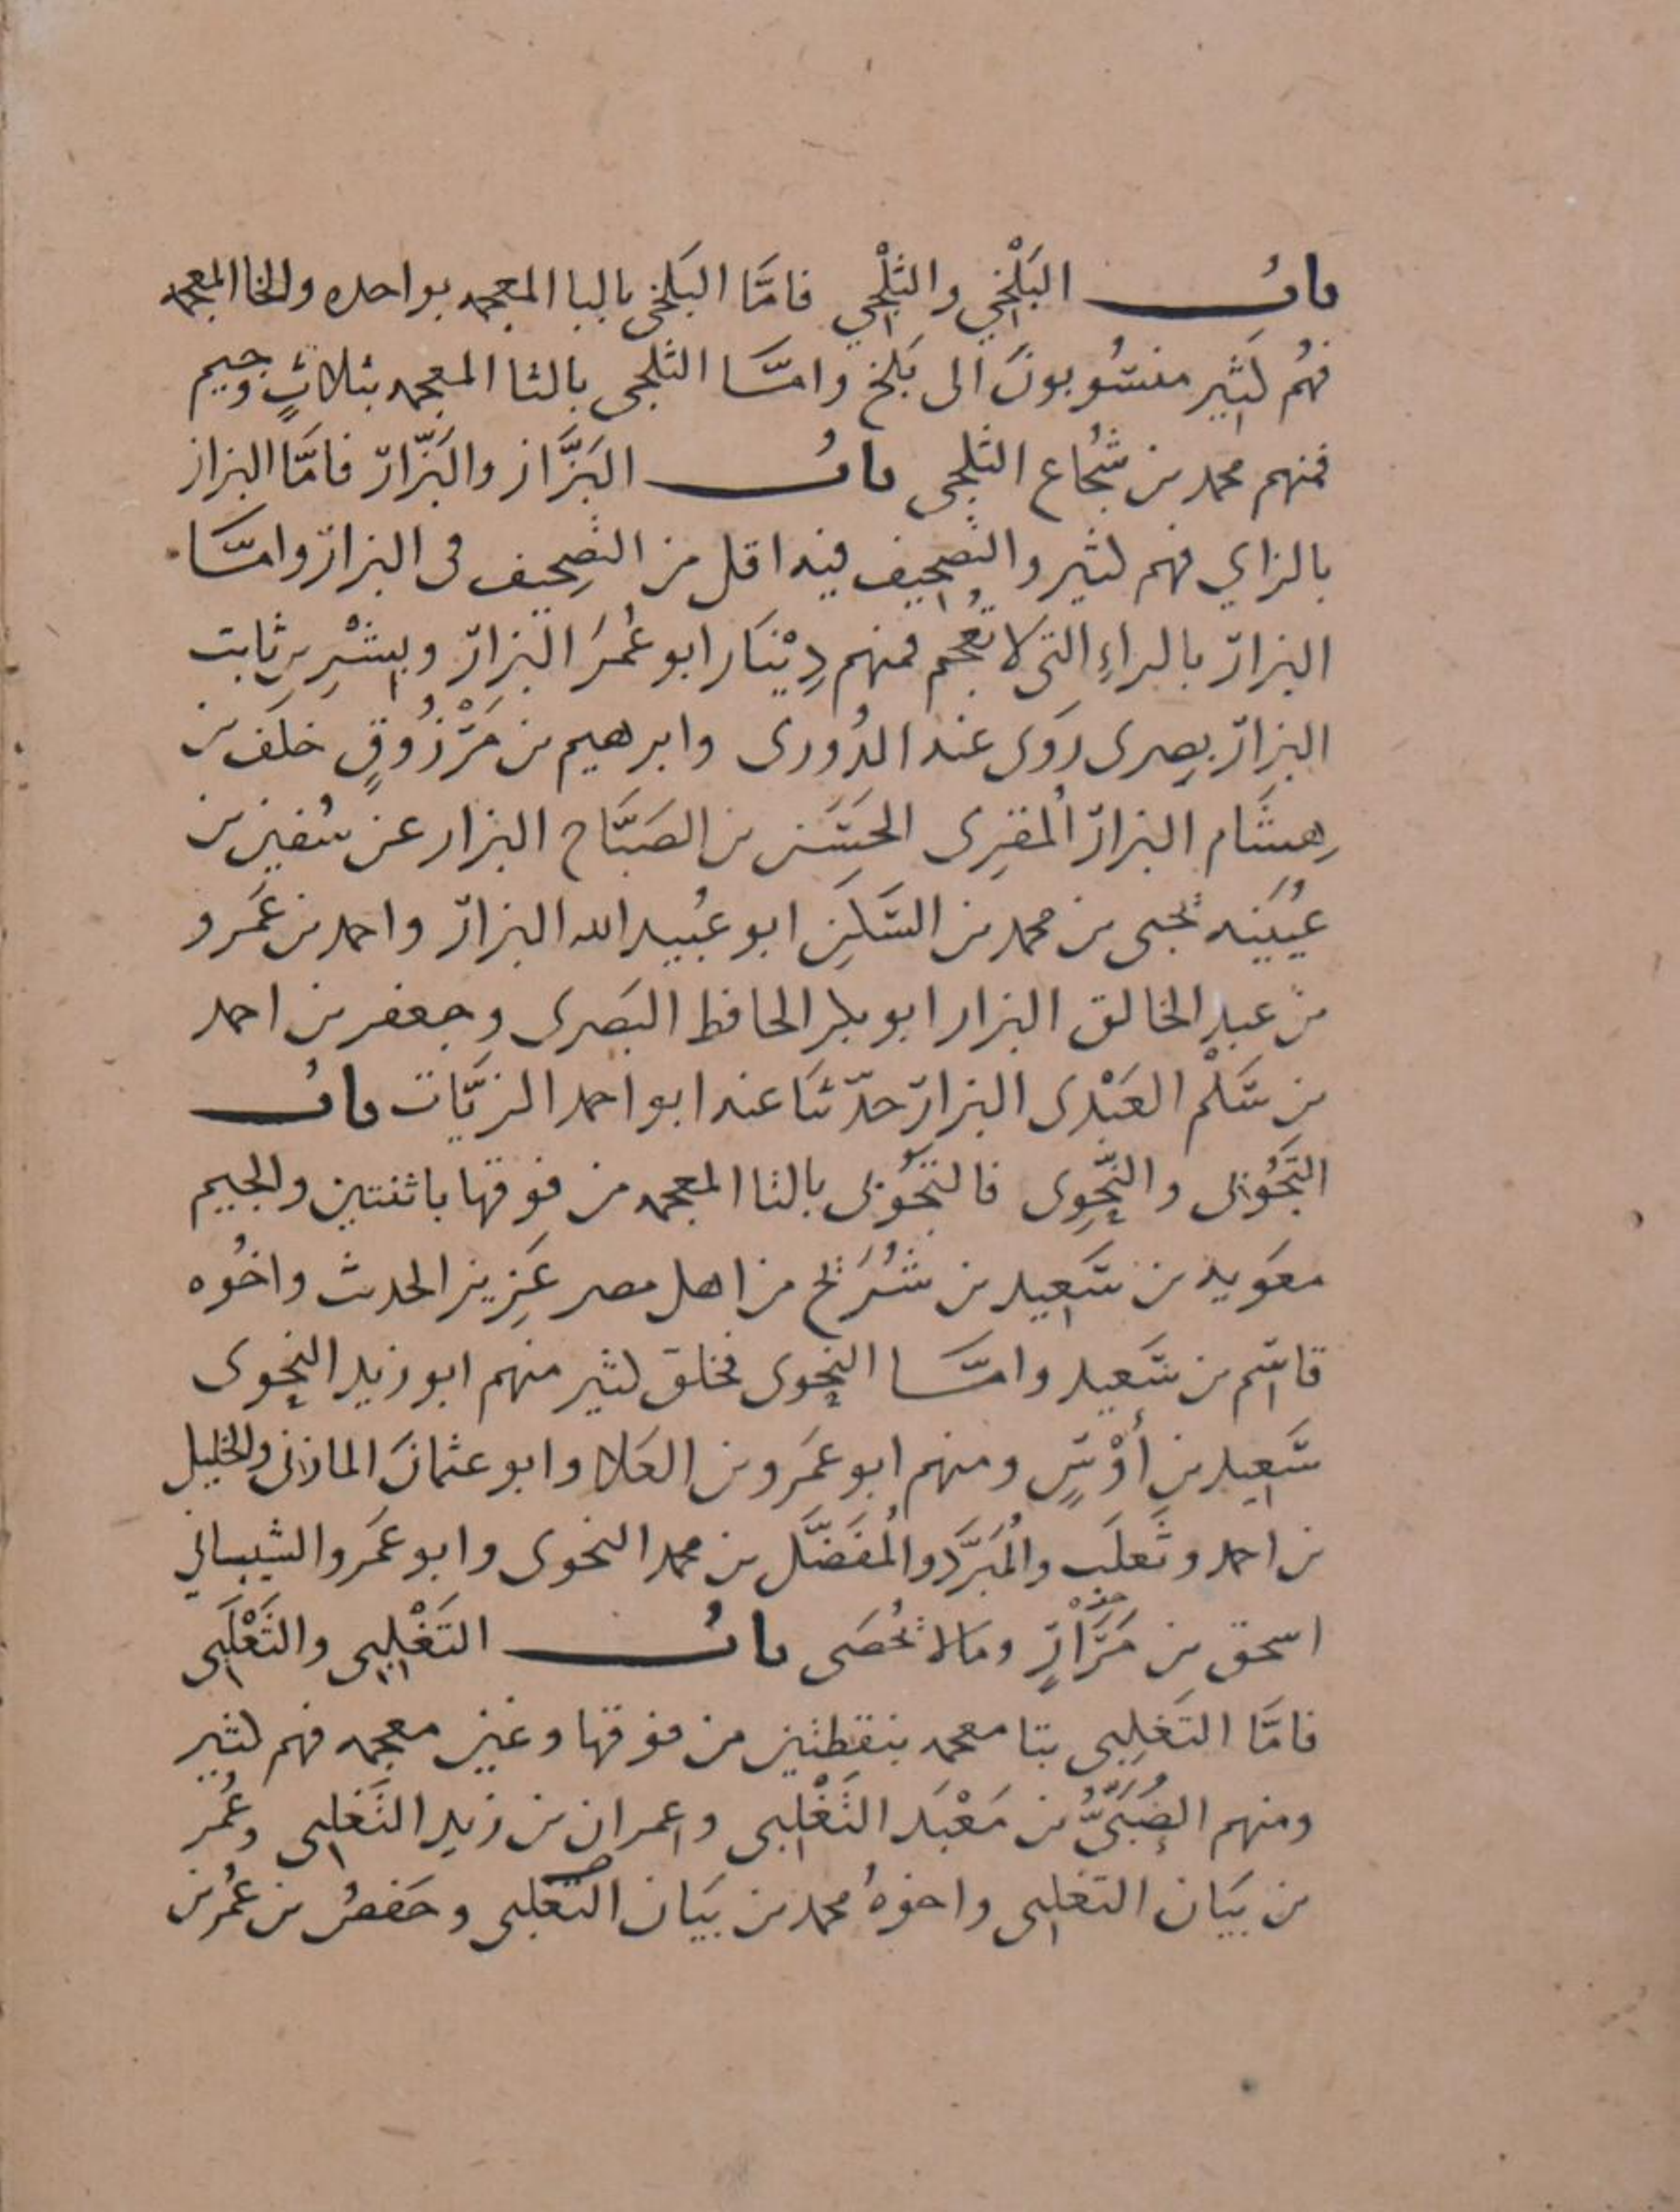 باب البَلْخِي والثَلْجِي فامَّا البَلخى بالبا المعجمه بواحده والخا المعجمه
فهُم كثِير منسُوبونَ الى بَلخ وامَّا الثلجى بالثا المعجمه بثلاثٍ وجيم
فمنهم محمد بن شُجَاع الثلجى بابُ البَزَّاز والبَزَّار فامَّا البزاز
بالزاي فهم كثير والتصحِيف فيه اقل من التصحِيف فى البزار وامَّا
البزار بالراءِ التى لا تُعجَم فمنهم دِيْنَار ابو عُمَرَ البزار وبِشْرِ بن ثابت
البزار بصرى رَوَى عنه الدُورى وابرهيم بن مَرْزُوقٍ خلَف بن
هِشَام البزار المُقرِى الحَسَن بن الصَبَّاح البزار عن سُفين بن
عُيَيْنه يحيى بن محمد بن السَكَنِ ابو عُبيد الله البزار واحمد بن عَمَرو
بن عبدِ الخالق البزار ابو بكر الحافظ البَصرى وجعفر بن احمد
بن سَلْم العَبْدى البزار حدّثنَا عنه ابو احمد الزيَّات بابُ
التَجُوْبى والنَّحْوِى فالتَجُوْبى بالتا المعجمه من فوقها باثنتين والجيم
معَويه بن سَعِيد بن شُرَيح من اهل مصر عَزِيز الحدث واخُوه
قاسِم بن سَعِيد وامَّا النحوى فخلق كثير منهم ابو زيد النحوى
سَعِيد بن أَوْسٍ ومنهم ابو عَمَرو بن العَلا وابو عثمانَ المازنى والخليل
بن احمد وثَعلَب والمُبَرَّد والمُفَضَّل بن محمد النحوى وابو عَمَرو الشيبانى
اسحق بن مَرَّارٍ ومَالا يُحصَى بابُ التَغْلِبِى والثَعْلَبِى
فامَّا التَغلِبى بتا معجمه بنقطتين من فوقها وغين معجمه فهم كثير
ومنهم الصُبَىُّ بن مَعْبَد التَغْلِبى وعمران بن زيد التَغلِبى وعُمَر
بن بيَان التغلِبى واخوهُ محمد بن بيَان التغلبى وحَفصُ بن عُمر بن